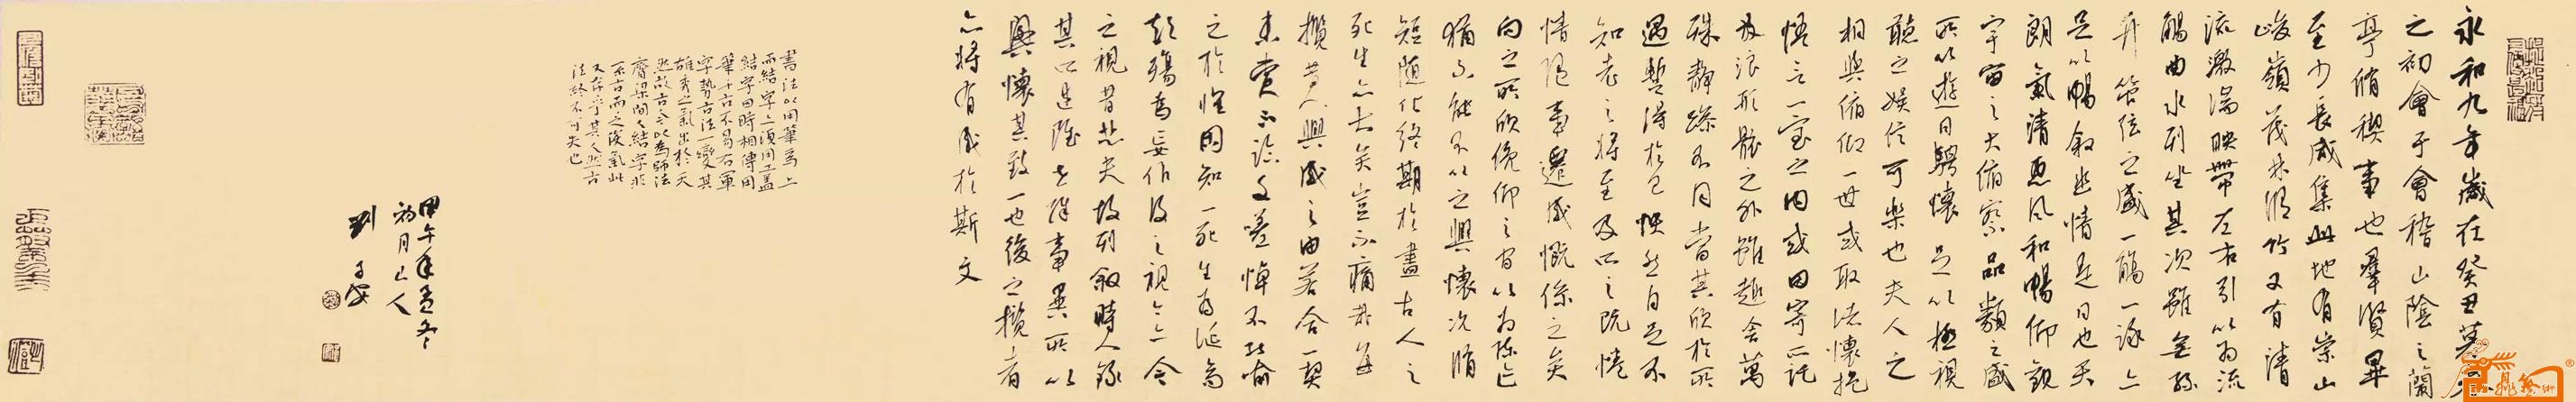 永和九年歲在癸丑暮春
之初會于會稽山陰之蘭
亭脩稧事也羣賢畢
至少長咸集此地有崇山
峻嶺茂林脩竹又有清
流激湍映帶左右引以為流
觴曲水列坐其次雖無絲
竹管弦之盛一觴一詠亦
足以暢敘幽情是日也天
朗氣清惠風和暢仰觀
宇宙之大俯察品類之盛
所以遊目騁懷足以極視
聽之娛信可樂也夫人之
相與俯仰一世或取諸懷抱
悟言一室之內或因寄所託
放浪形骸之外雖趣舍萬
殊靜躁不同當其欣於所
遇暫得於己快然自足不
知老之將至及其所之既惓
情隨事遷感慨係之矣
向之所欣俛仰之間以為陳迹
猶不能不以之興懷況脩
短隨化終期於盡古人云
死生亦大矣豈不痛哉每
攬昔人興感之由若合一契
未嘗不臨文嗟悼不能喻
之於懷固知一死生為虛誕齊
彭殤為妄作後之視今亦今
之視昔悲夫故列敘時人錄
其所述雖世殊事異所以
興懷其致一也後之攬者
亦將有感於斯文
書法以用筆為上
而結字亦須用工蓋
結字因時相傳用
筆千古不易右軍
字勢古法一變其
雄秀之氣出於天
然故古今以為師法
齊梁間人結字非
不古而乏俊氣此
又存乎其人然古
法終不可失也
甲午年孟冬
初月上人
劉